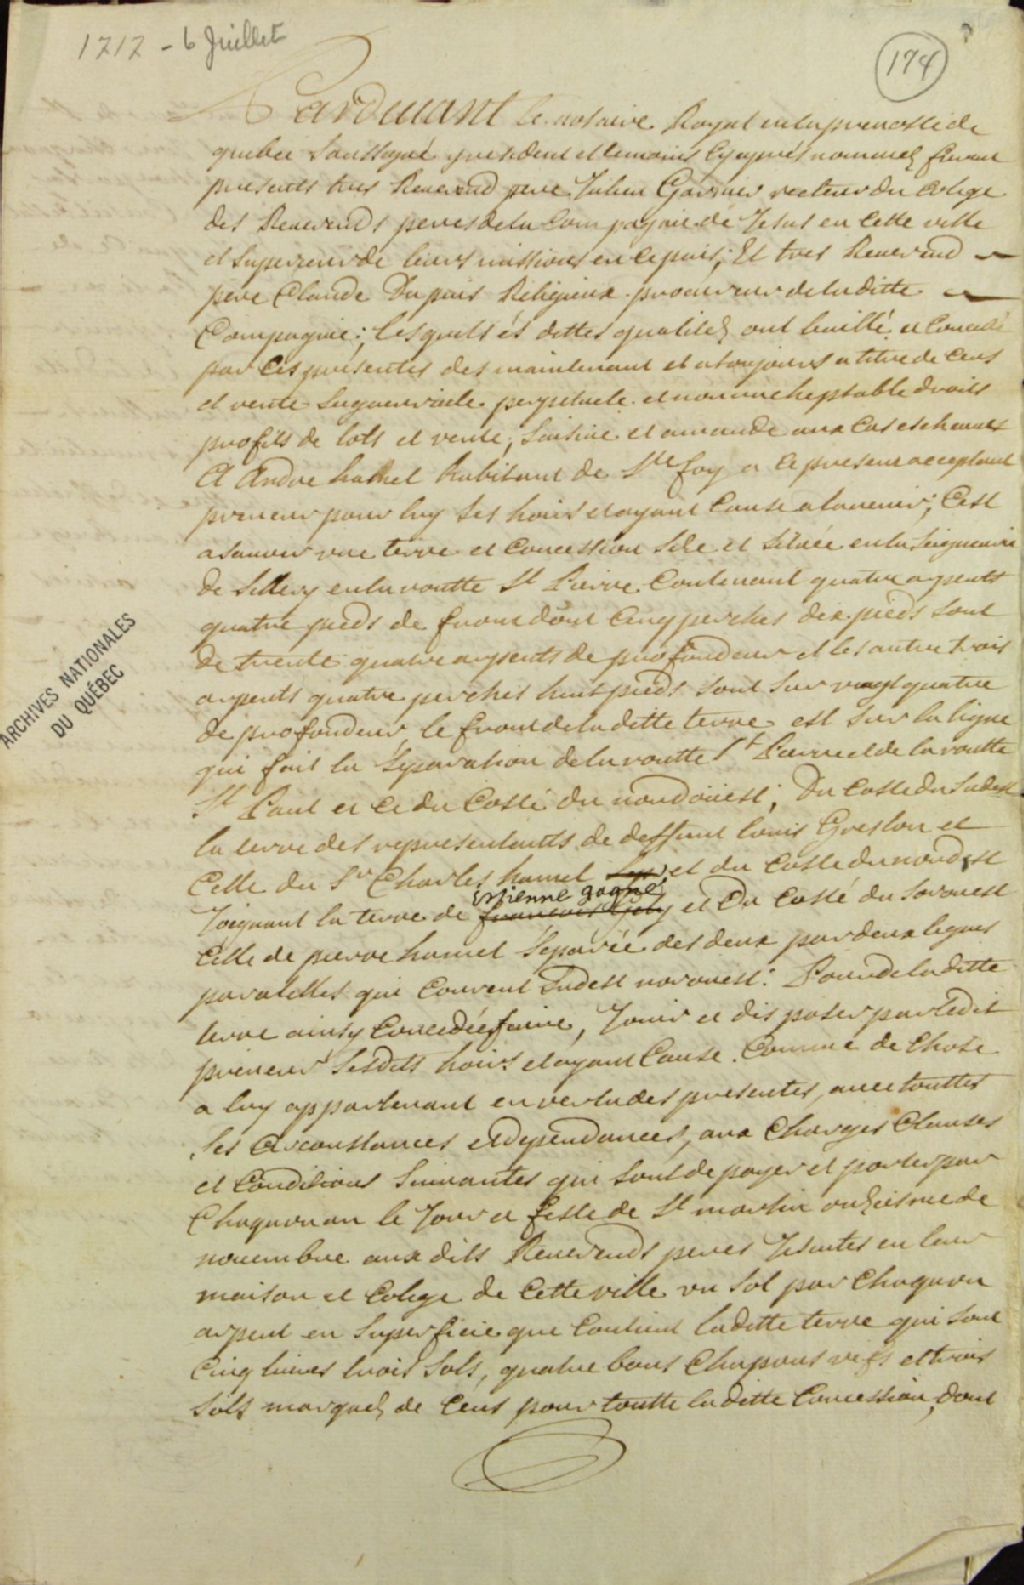 1717 - 6 Juillet
174
Pardevant le notaire Royal en la prevosté de
quebec soussigné y resident et temoins cy apres nommez furent
presents tres Reverend pere Julien Garnier recteur du colege
des Reverends peres de la Compagnie de Jesus en cette ville
et superieur de leurs missions en ce pais; Et tres Reverend
pere Claude Dupuis Religieux procureur de la ditte
Compagnie; lesquels és dittes qualitez ont baillé et concedé
par ces presentes des maintenant et a toujours a titre de cens
et rente seigneurialle perpetuele et non racheptable droits
profits de lots et vente, saisine et amande aux cas escheants
A Andre hamel habitant de Ste foy a ce present acceptant
preneur pour luy ses hoirs et ayant cause a lavenir; Cest
asavoir une terre et concession size et située en la seigneurie
de Sillery en la routte St Pierre Contenant quatre arpents
quatre pieds de front dont cinq perches dix pieds sont
de trente quatre arpents de profondeur et les autre trois
arpents quatre perches huit pieds sont sur vingt quatre
de profondeur le front de la ditte terre est sur la ligne
qui fait la separation de la routte St Pierre et de la routte
St Paul et ce du Costé du nordoüest; Du Costé du Sudest
la terre des representants de deffunt louis Greslon et
Celle du Sr Charles hamel et du Costé du nordest
Joignant la terre de francois Joly et Du Costé du Sorouest
Estienne gagné
Celle de pierre hamel separée des deux par deux lignes
paralelles qui courent Sudest norouest: Pour de la ditte
terre ainsy Concedée faire, Jouir et disposer par ledit
preneur sesdits hoirs et ayant Cause Comme de Chose
a luy appartenant en vertu des presentes, avec touttes
ses Circonstances et dependances, aux Charges Clauses
et Conditions suivantes qui sont de payer et porter par
Chaquun an le Jour et feste de St martin onziesme de
novembre aux dits Reverends peres Jesuites en leur
maison et Colege de Cette ville un sol par Chaquun
arpent en superficie que Contient laditte terre qui sont
Cinq livres trois sols, quatre bons Chapons vifs et trois
sols marquez de Cens pour toutte laditte Concession, dont
ARCHIVES NATIONALES
DU QUÉBEC